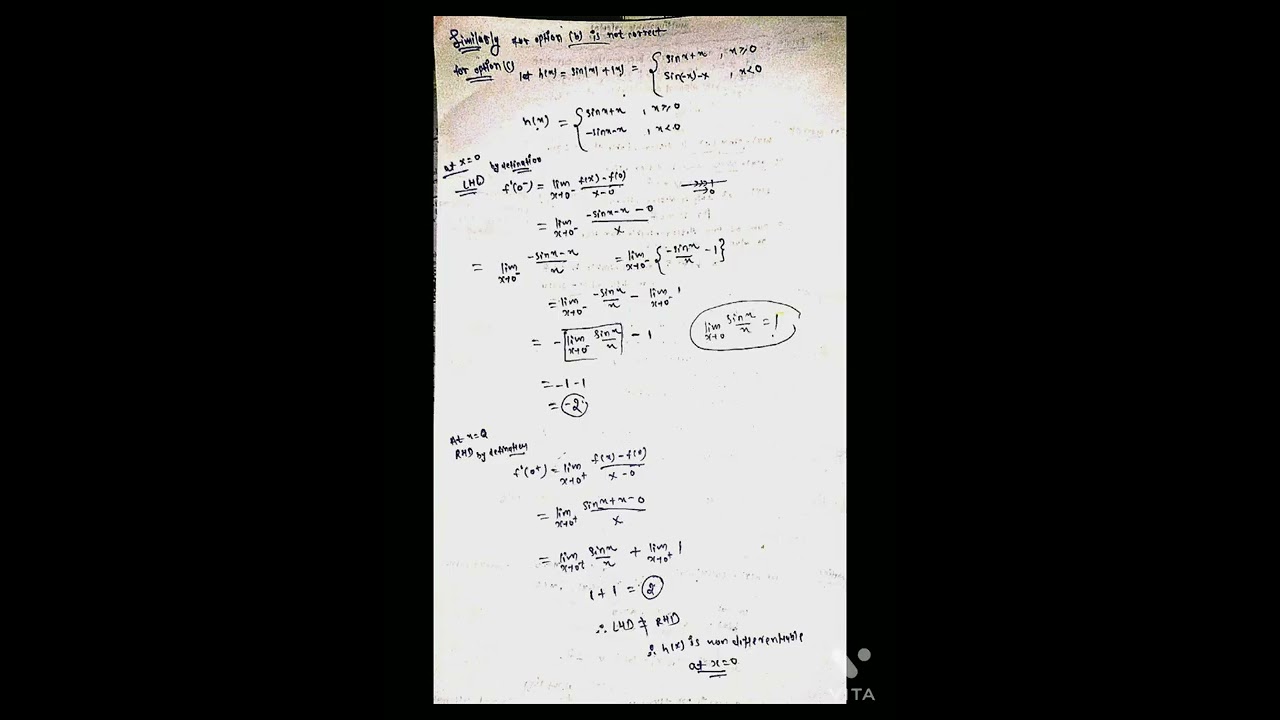 Similarly for option (b) is not correct
for option (c) let h(x) = sin|x| + |x| = { sinx+x , x≥0
sin(-x)-x , x<0
h(x) = { sinx+x , x≥0
-sinx-x , x<0
at x=0 by defination
LHD f'(0⁻) = lim x→0⁻ f(x)-f(0) / x-0
= lim x→0⁻ -sinx-x-0 / x
= lim x→0⁻ -sinx-x / x = lim x→0⁻ { -sinx/x - 1 }
= lim x→0⁻ -sinx/x - lim x→0⁻ 1
= - lim x→0⁻ sinx/x - 1 lim x→0 sinx/x = 1
= -1-1
= -2
At x=0
RHD by defination
f'(0⁺) = lim x→0⁺ f(x)-f(0) / x-0
= lim x→0⁺ sinx+x-0 / x
= lim x→0⁺ sinx/x + lim x→0⁺ 1
1+1 = 2
∴ LHD ≠ RHD
∴ h(x) is non differentiable
at x=0
VITA